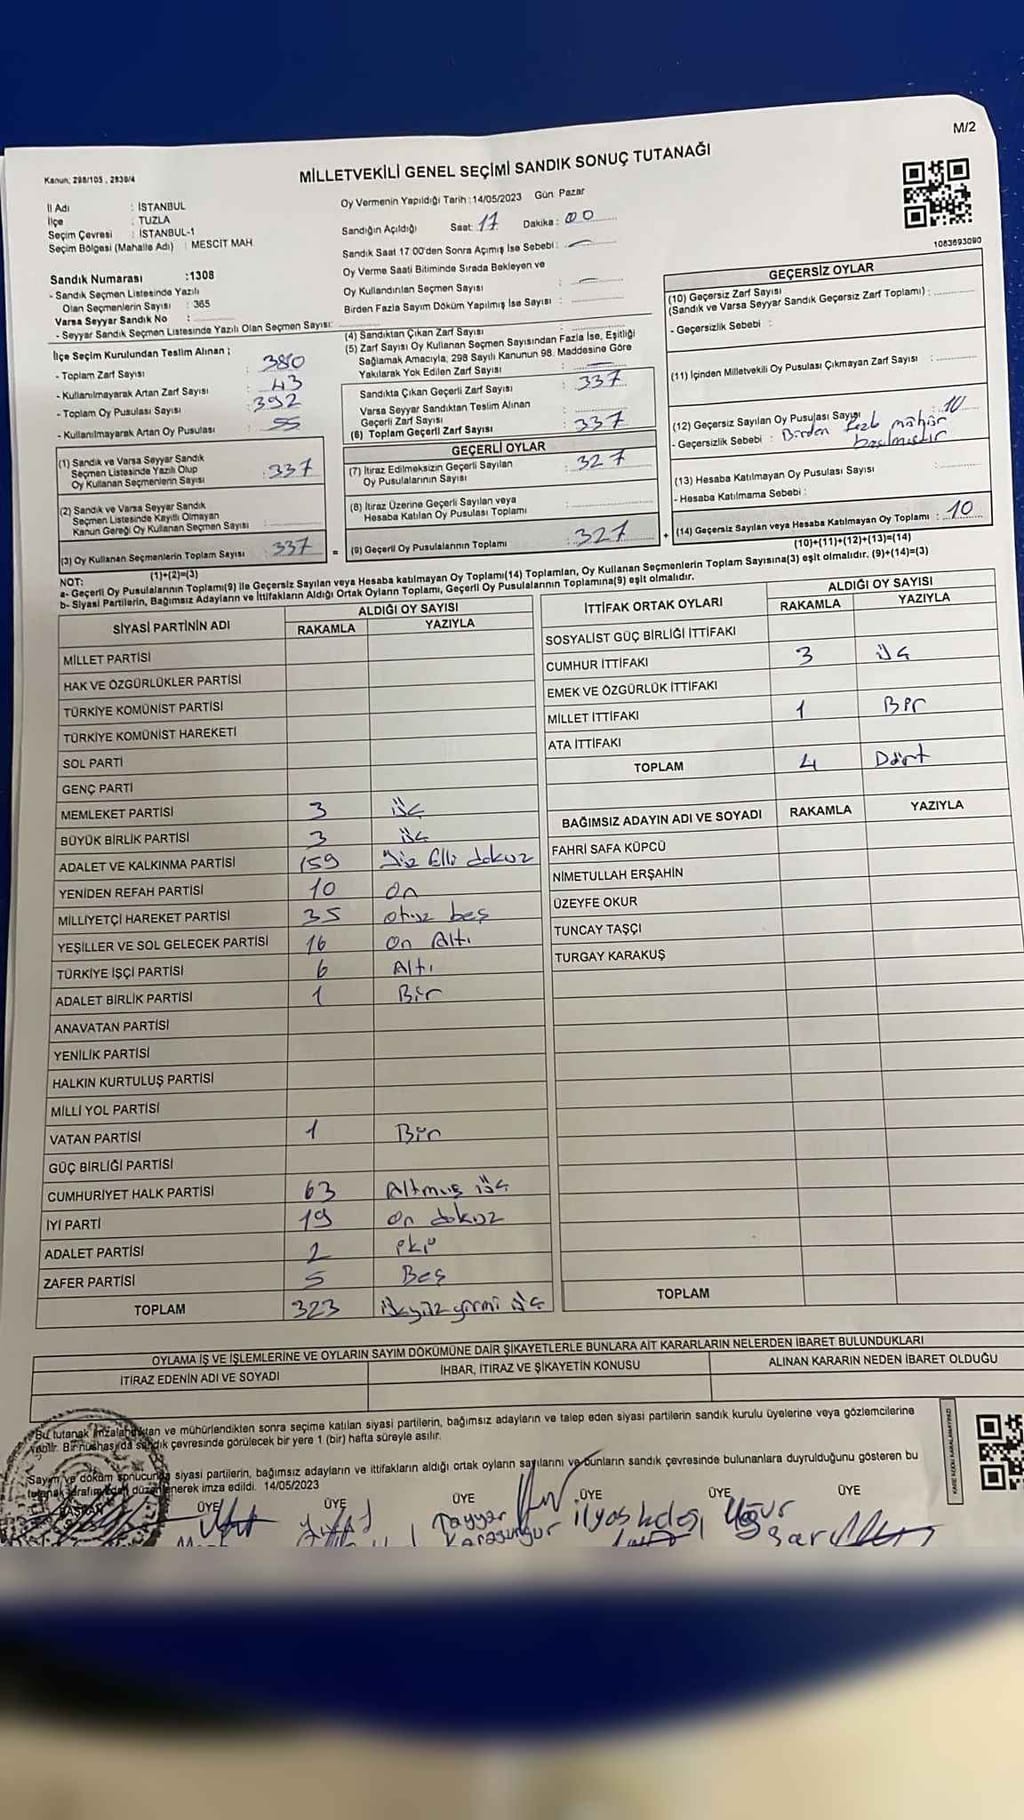 M/2
Kanun: 298/105 , 2839/4
MİLLETVEKİLİ GENEL SEÇİMİ SANDIK SONUÇ TUTANAĞI
İl Adı : İSTANBUL
İlçe : TUZLA
Seçim Çevresi : İSTANBUL-1
Seçim Bölgesi (Mahalle Adı) : MESCİT MAH.
Oy Vermenin Yapıldığı Tarih :14/05/2023 Gün Pazar
Sandığın Açıldığı Saat: 17 Dakika: 00
Sandık Saat 17.00'den Sonra Açımış İse Sebebi :
Oy Verme Saati Bitiminde Sırada Bekleyen ve
Oy Kullandırılan Seçmen Sayısı :
Birden Fazla Sayım Döküm Yapılmış İse Sayısı :
1083693090
Sandık Numarası :1308
- Sandık Seçmen Listesinde Yazılı
Olan Seçmenlerin Sayısı : 365
Varsa Seyyar Sandık No :
- Seyyar Sandık Seçmen Listesinde Yazılı Olan Seçmen Sayısı:
İlçe Seçim Kurulundan Teslim Alınan ;
- Toplam Zarf Sayısı : 380
- Kullanılmayarak Artan Zarf Sayısı : 43
- Toplam Oy Pusulası Sayısı : 392
- Kullanılmayarak Artan Oy Pusulası : 55
(1) Sandık ve Varsa Seyyar Sandık
Seçmen Listesinde Yazılı Olup
Oy Kullanan Seçmenlerin Sayısı : 337
(2) Sandık ve Varsa Seyyar Sandık
Seçmen Listesinde Kayıtlı Olmayan
Kanun Gereği Oy Kullanan Seçmen Sayısı :
(3) Oy Kullanan Seçmenlerin Toplam Sayısı : 337
(1)+(2)=(3)
(4) Sandıktan Çıkan Zarf Sayısı
(5) Zarf Sayısı Oy Kullanan Seçmen Sayısından Fazla İse, Eşitliği
Sağlamak Amacıyla, 298 Sayılı Kanunun 98. Maddesine Göre
Yakılarak Yok Edilen Zarf Sayısı :
Sandıkta Çıkan Geçerli Zarf Sayısı : 337
Varsa Seyyar Sandıktan Teslim Alınan
Geçerli Zarf Sayısı :
(6) Toplam Geçerli Zarf Sayısı : 337
GEÇERLİ OYLAR
(7) İtiraz Edilmeksizin Geçerli Sayılan
Oy Pusulalarının Sayısı : 327
(8) İtiraz Üzerine Geçerli Sayılan veya
Hesaba Katılan Oy Pusulası Toplamı :
= (9) Geçerli Oy Pusulalarının Toplamı : 327
GEÇERSİZ OYLAR
(10) Geçersiz Zarf Sayısı
(Sandık ve Varsa Seyyar Sandık Geçersiz Zarf Toplamı) :
- Geçersizlik Sebebi :
(11) İçinden Milletvekili Oy Pusulası Çıkmayan Zarf Sayısı :
(12) Geçersiz Sayılan Oy Pusulası Sayısı : 10
- Geçersizlik Sebebi : Birden fazla mühür
basılmıştır
(13) Hesaba Katılmayan Oy Pusulası Sayısı :
- Hesaba Katılmama Sebebi :
+ (14) Geçersiz Sayılan veya Hesaba Katılmayan Oy Toplamı : 10
(10)+(11)+(12)+(13)=(14)
NOT:
a- Geçerli Oy Pusulalarının Toplamı(9) ile Geçersiz Sayılan veya Hesaba katılmayan Oy Toplamı(14) Toplamları, Oy Kullanan Seçmenlerin Toplam Sayısına(3) eşit olmalıdır. (9)+(14)=(3)
b- Siyasi Partilerin, Bağımsız Adayların ve İttifakların Aldığı Ortak Oyların Toplamı, Geçerli Oy Pusulalarının Toplamına(9) eşit olmalıdır.
SİYASİ PARTİNİN ADI ALDIĞI OY SAYISI
RAKAMLA YAZIYLA
MİLLET PARTİSİ
HAK VE ÖZGÜRLÜKLER PARTİSİ
TÜRKİYE KOMÜNİST PARTİSİ
TÜRKİYE KOMÜNİST HAREKETİ
SOL PARTİ
GENÇ PARTİ
MEMLEKET PARTİSİ 3 üç
BÜYÜK BİRLİK PARTİSİ 3 üç
ADALET VE KALKINMA PARTİSİ 159 Yüz Elli dokuz
YENİDEN REFAH PARTİSİ 10 on
MİLLİYETÇİ HAREKET PARTİSİ 35 otuz beş
YEŞİLLER VE SOL GELECEK PARTİSİ 16 on Altı
TÜRKİYE İŞÇİ PARTİSİ 6 Altı
ADALET BİRLİK PARTİSİ 1 Bir
ANAVATAN PARTİSİ
YENİLİK PARTİSİ
HALKIN KURTULUŞ PARTİSİ
MİLLİ YOL PARTİSİ
VATAN PARTİSİ 1 Bir
GÜÇ BİRLİĞİ PARTİSİ
CUMHURİYET HALK PARTİSİ 63 Altmış üç
İYİ PARTİ 19 on dokuz
ADALET PARTİSİ 2 iki
ZAFER PARTİSİ 5 Beş
TOPLAM 323 üçyüz yirmi üç
İTTİFAK ORTAK OYLARI ALDIĞI OY SAYISI
RAKAMLA YAZIYLA
SOSYALİST GÜÇ BİRLİĞİ İTTİFAKI
CUMHUR İTTİFAKI 3 üç
EMEK VE ÖZGÜRLÜK İTTİFAKI
MİLLET İTTİFAKI 1 Bir
ATA İTTİFAKI
TOPLAM 4 Dört
BAĞIMSIZ ADAYIN ADI VE SOYADI RAKAMLA YAZIYLA
FAHRİ SAFA KÜPCÜ
NİMETULLAH ERŞAHİN
ÜZEYFE OKUR
TUNCAY TAŞÇI
TURGAY KARAKUŞ
TOPLAM
OYLAMA İŞ VE İŞLEMLERİNE VE OYLARIN SAYIM DÖKÜMÜNE DAİR ŞİKAYETLERLE BUNLARA AİT KARARLARIN NELERDEN İBARET BULUNDUKLARI
İTİRAZ EDENİN ADI VE SOYADI İHBAR, İTİRAZ VE ŞİKAYETİN KONUSU ALINAN KARARIN NEDEN İBARET OLDUĞU
Bu tutanak imzalandıktan ve mühürlendikten sonra seçime katılan siyasi partilerin, bağımsız adayların ve talep eden siyasi partilerin sandık kurulu üyelerine veya gözlemcilerine
verilir. Bir nüshası da sandık çevresinde görülecek bir yere 1 (bir) hafta süreyle asılır.
Sayım ve döküm sonucunda siyasi partilerin, bağımsız adayların ve ittifakların aldığı ortak oyların sayılarını ve bunların sandık çevresinde bulunanlara duyrulduğunu gösteren bu
tutanak tarafımızdan düzenlenerek imza edildi. 14/05/2023
BAŞKAN ÜYE ÜYE ÜYE ÜYE ÜYE ÜYE
Tayyar
Karasungur
ilyas
Uğur
KARE KODU KARALAMAYINIZ